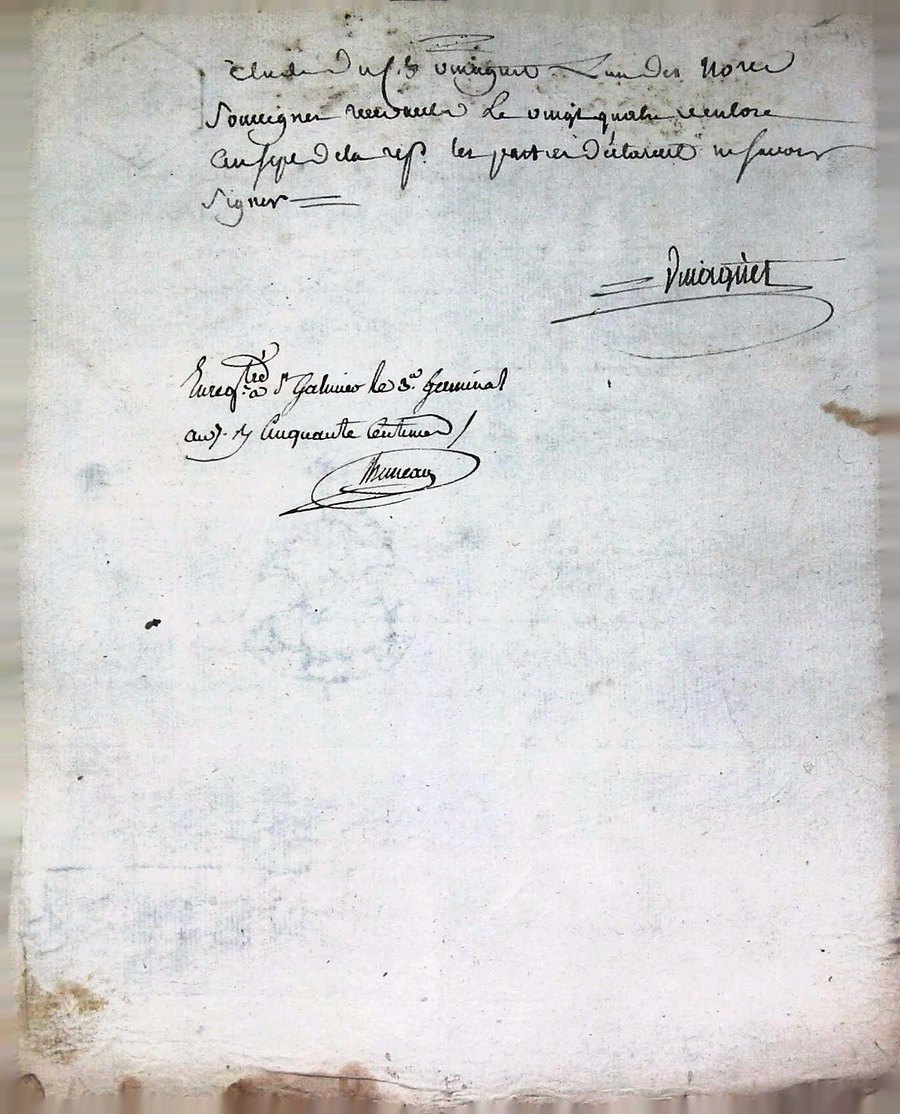 Etude du C. Vmaignet L'un des Nores
Soussignes le vingt quatre ventose
an sept de la rep. les parties déclarent ne savoir
signer
Enregtré à St Galmier le 3e. Germinal
an 7. Cinquante Centimes